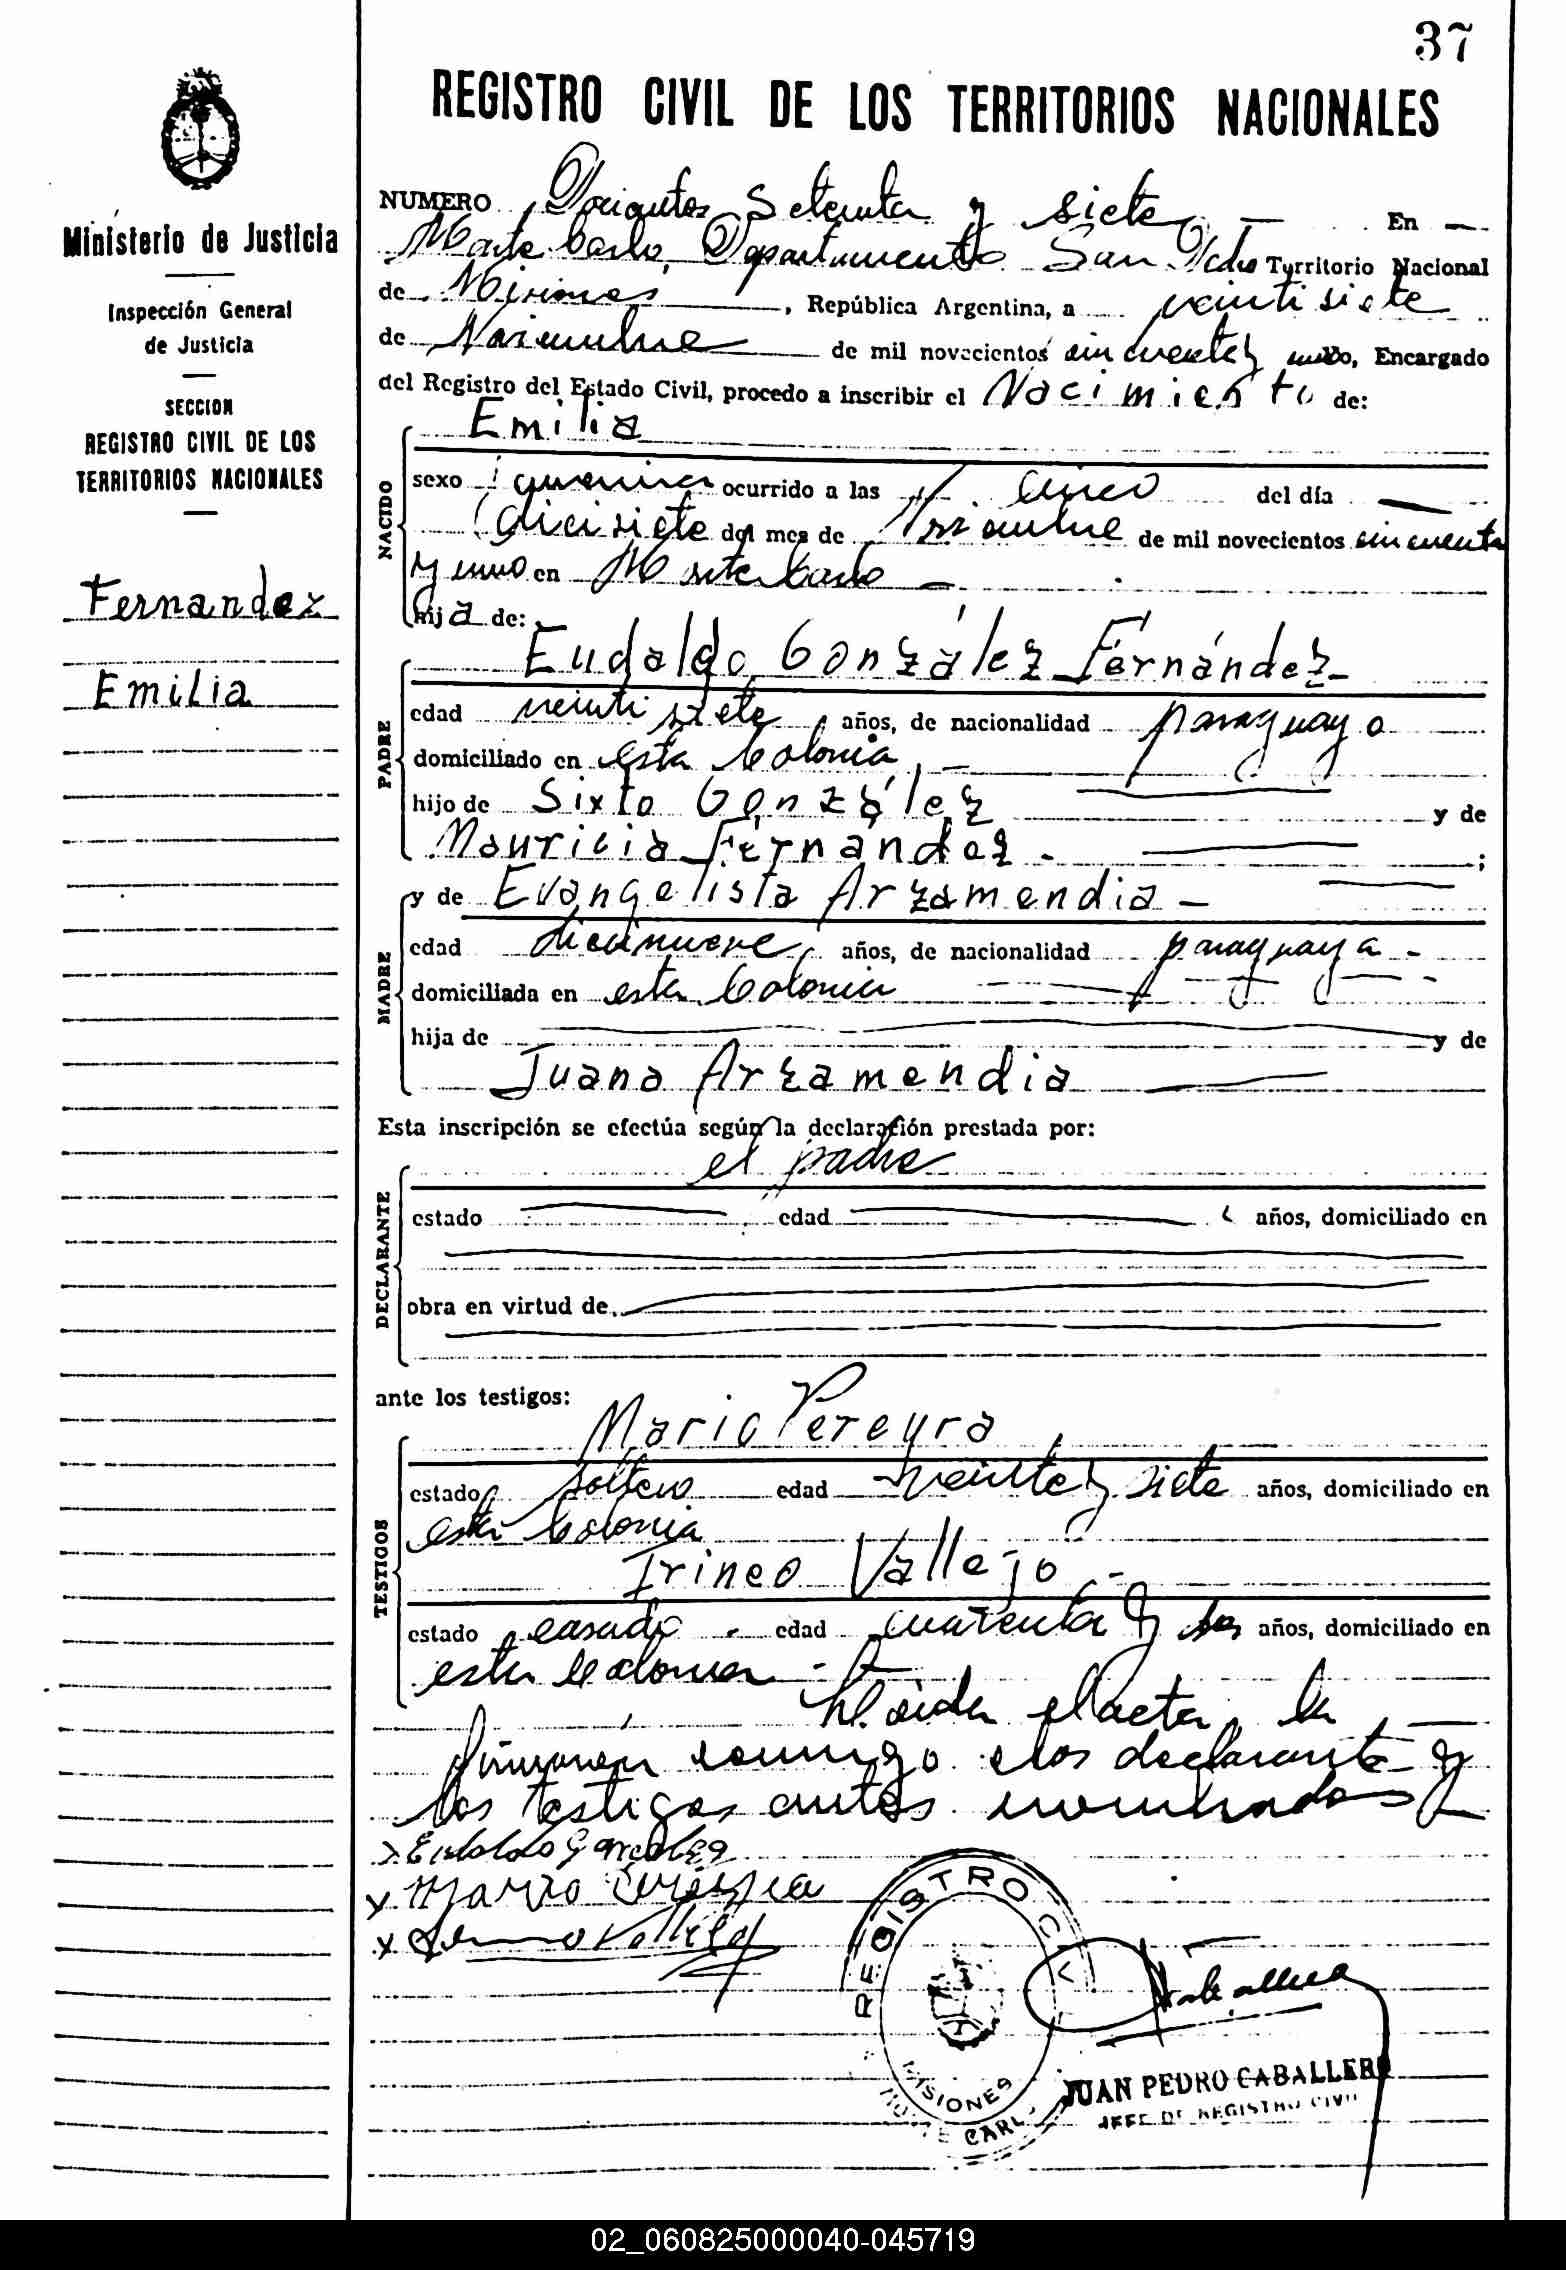 37
REGISTRO CIVIL DE LOS TERRITORIOS NACIONALES
Ministerio de Justicia
Inspección General
de Justicia
SECCION
REGISTRO CIVIL DE LOS
TERRITORIOS NACIONALES
Fernandez
Emilia
NUMERO Dosientos Setenta y siete En
Monte Carlo, Departamento San Pedro Territorio Nacional
de Misiones, República Argentina, a veinti siete
de Noviembre de mil novecientos cincuenta y uno, Encargado
del Registro del Estado Civil, procedo a inscribir el Nacimiento de:
NACIDO
Emilia
sexo femenino ocurrido a las cinco del día
diecisiete del mes de Noviembre de mil novecientos cincuenta
y uno en Monte Carlo
hija de:
PADRE
Eudaldo González Fernández
edad veinti siete años, de nacionalidad paraguayo
domiciliado en esta Colonia,
hijo de Sixto González y de
Mauricia Fernández. ;
MADRE
y de Evangelista Arzamendia
edad diecinueve, años, de nacionalidad paraguaya
domiciliada en esta Colonia
hija de y de
Juana Arzamendia
Esta inscripción se efectúa según la declaración prestada por:
DECLARANTE
el padre
estado edad años, domiciliado en
obra en virtud de
ante los testigos:
TESTIGOS
Mario Pereyra
estado soltero edad veinte y siete años, domiciliado en
esta Colonia
Irineo Vallejo
estado casado edad cuarenta y años, domiciliado en
esta Colonia
leida el acta, la
firmaron conmigo los declarante y
los testigos antes nombrados
Eudaldo Gonzalez
Mario Pereyra
Irineo Vallejo
REGISTRO CIV
MISIONES
MONTE CARLO
JUAN PEDRO CABALLERO
JEFE DE REGISTRO CIVIL
02_060825000040-045719